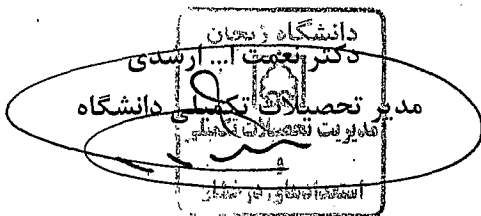 دانشگاه زنجان
دکتر نعمت ا... ارسدی
مدیر تحصیلات تکمیلی دانشگاه
مدیریت تحصیلات تکمیلی
استعدادهای درخشان